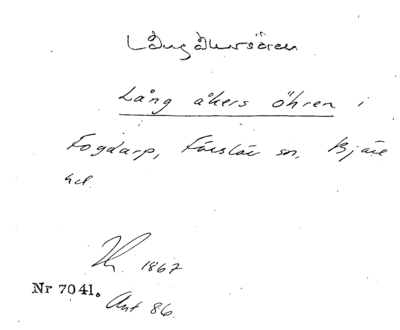 Långåkersören
Lång åkers öhren i
Fogdarp, Förslöv sn, Bjäre
hd.
1867
Nr 7041.
Ant 86.